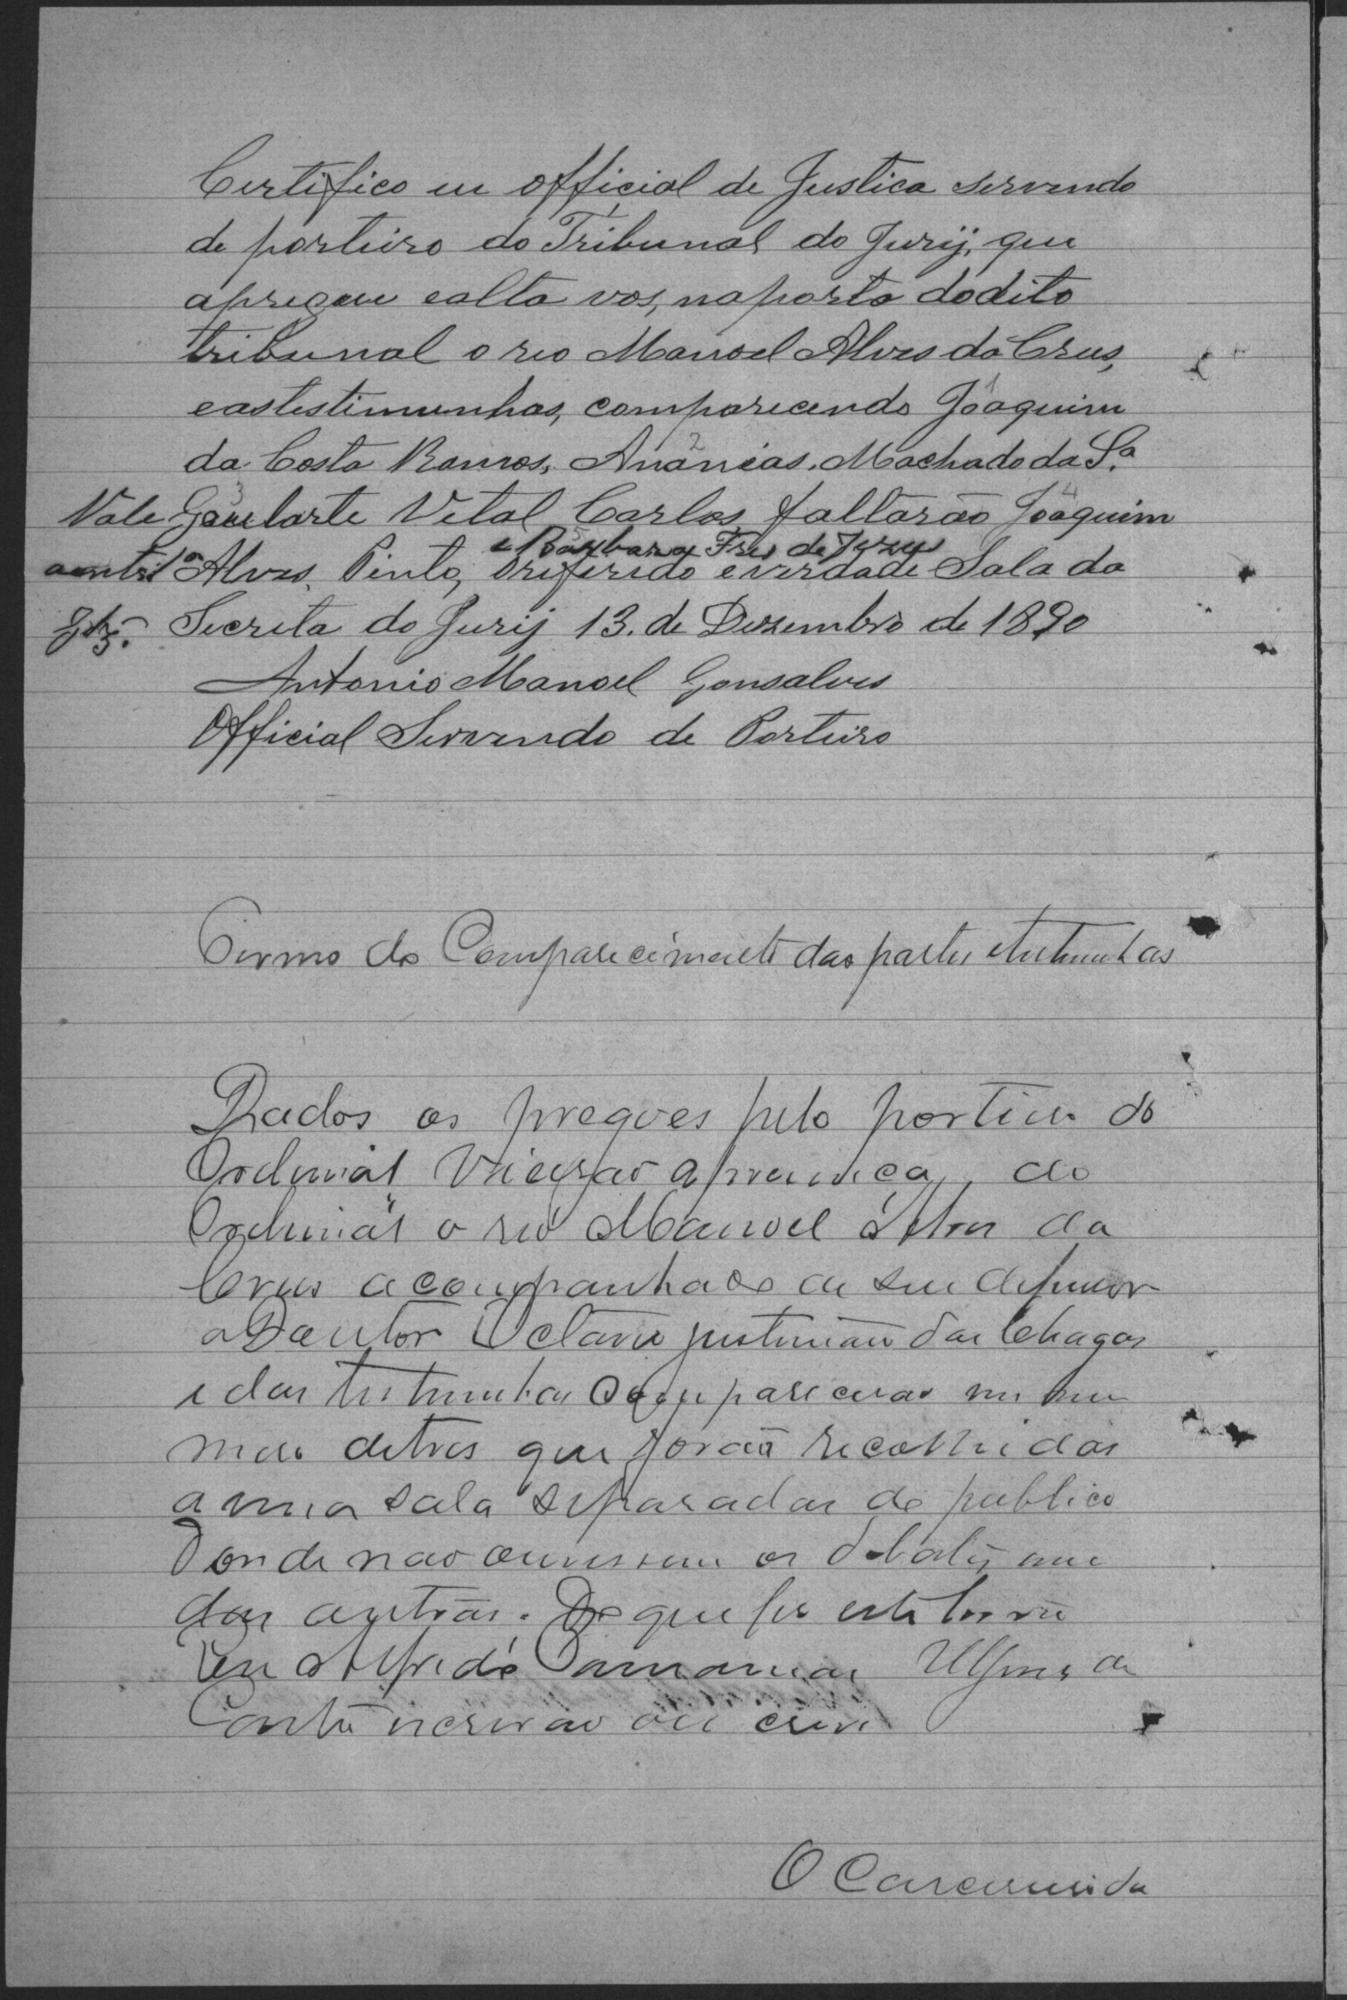 Certifico eu official de Justica servindo
de porteiro do Tribunal do Jurÿ, que
apregoei ealta vos, naporta dodito
tribunal o reo Manoel Alves da Crus,
eastestimunhas, comparecendo Joaquim
da Costa Ramos, Ananias Machado da S.ª
Goularte Vital Carlos faltarão Joaquim
Vale
aentrl.ª
Glz.
e Barbara Frs de Jezus
Alves Pinto, Oriferido everdade Sala da
Secreta do Jurÿ 13. de Dezembro de 1890
Antonio Manoel Gonsalves
Official Servindo de Porteiro
Termo de Comparecimento das partes etestemunhas
Dados os pregoes pelo porteiro do
Tribunal a presença do
Tribunal o reo Manoel Alves da
Crus acompanhado de seu defensor
o Doutor Octavio justiniano das Chagas
e das testemunhas compareceram
mero detres que forão recolhidas
a uma sala separadas do publico
donde nao ouvissem os debates
das outras. Do que fis este termo
Eu Alfredo
Couto escrivão que escrevi
O